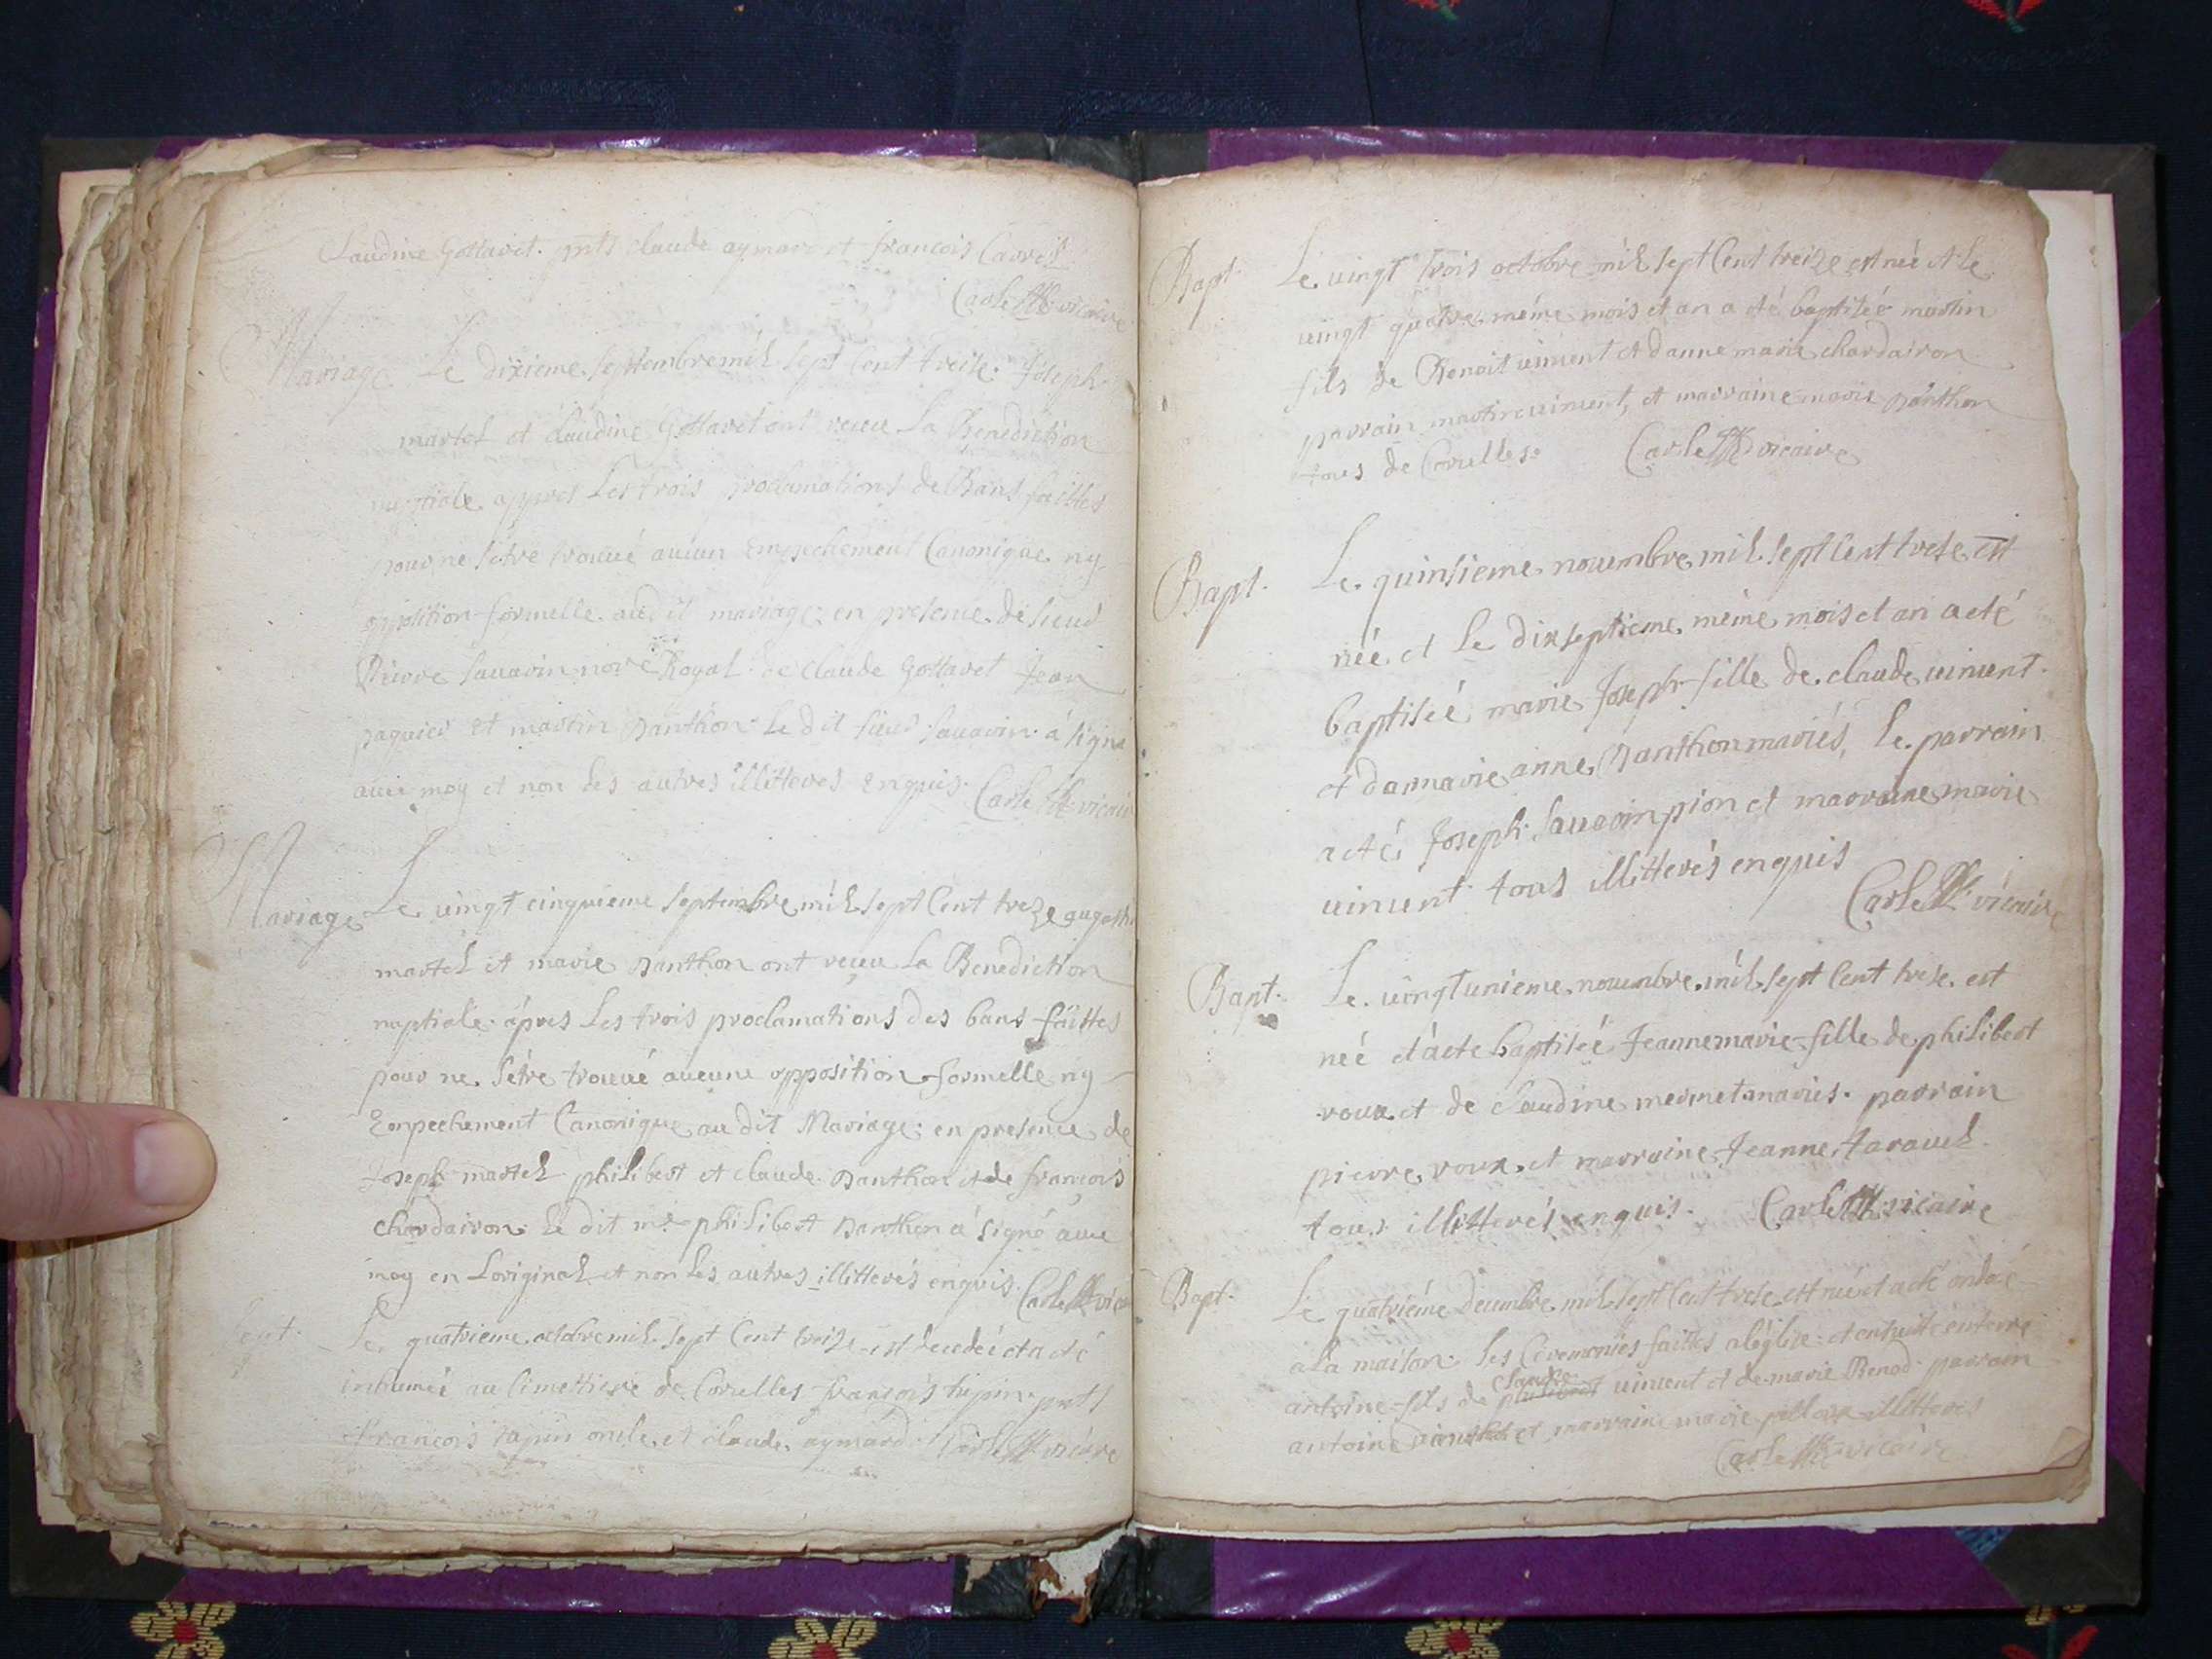 Claudine Gottaret. pnts claude aymard et francois Carril
Carle ptre vicaire
Mariage Le dixieme septembre mil sept Cent treise. Joseph
martel et claudine Gottaret ont receu La Benediction
nuptiale appres Les trois proclamations de Bans faittes
pour ne s'etre trouué aucun Empechement Canonique ny
opposition formelle au dit mariage; en presence de sieur
Pierre sauarin nore Royal. de claude Gottaret Jean
paquier et martin panthon. Le dit sieur sauarin à signé
auec moy et non Les autres illitteres Enquis. Carle ptre vicaire
Mariage Le uingt cinquieme septembre mil sept Cent treze augustin
martel et marie panthon ont receu La Benediction
nuptiale. àpres Les trois proclamations des bans faittes
pour ne s'étre trouué aucune opposition formelle ny
Enpechement Canonique au dit Mariage; en presence de
Joseph martel philibert et claude panthon et de francois
chardairon. Le dit me philibert panthon à signé auec
moy en Loriginal et non Les autres illitterés enquis. Carle ptre vicaire
Sept. Le quatrieme octobre mil sept Cent treize est decedé et a eté
inhumé au Cimettiere de Coruelles francois tupin pnts
francois tupin oncle, et claude aymard Carle ptre vicaire
Bapt. Le uingt trois octobre mil sept Cent treize est née et Le
uingt quatre méme mois et an a eté baptisée martin
fils de Benoit uinient et danne marie chardairon
parrain martin uinient, et marraine marie panthon
tous de Coruelles. Carle ptre vicaire
Bapt. Le quinsieme nouembre mil sept Cent trese est
née et Le dixseptieme méme mois et an a eté
baptiseé marie Joseph fille de claude uinient.
et damarie anne panthon mariés, le parrain
a eté Joseph sauarin pion et marraine marie
uinient tous illitterés enquis
Carle ptre vicaire
Bapt. Le uingtunieme nouembre mil sept Cent trese est
neé et a eté baptiseé Jeannemarie fille de philibert
roux et de claudine mermet mariés. parrain
pierre roux et marraine Jeanne tarauel
tous illitterés enquis. Carle ptre vicaire
Bapt. Le quatriéme decembre mil sept Cent trese est né et a eté ondoié
a La maison. Les Ceremonies faittes a léglise et ensuitte enterré
claude
antoine fils de philibert uinient et de marie Benod parrain
antoine et marraine marie illitteres
Carle ptre vicaire